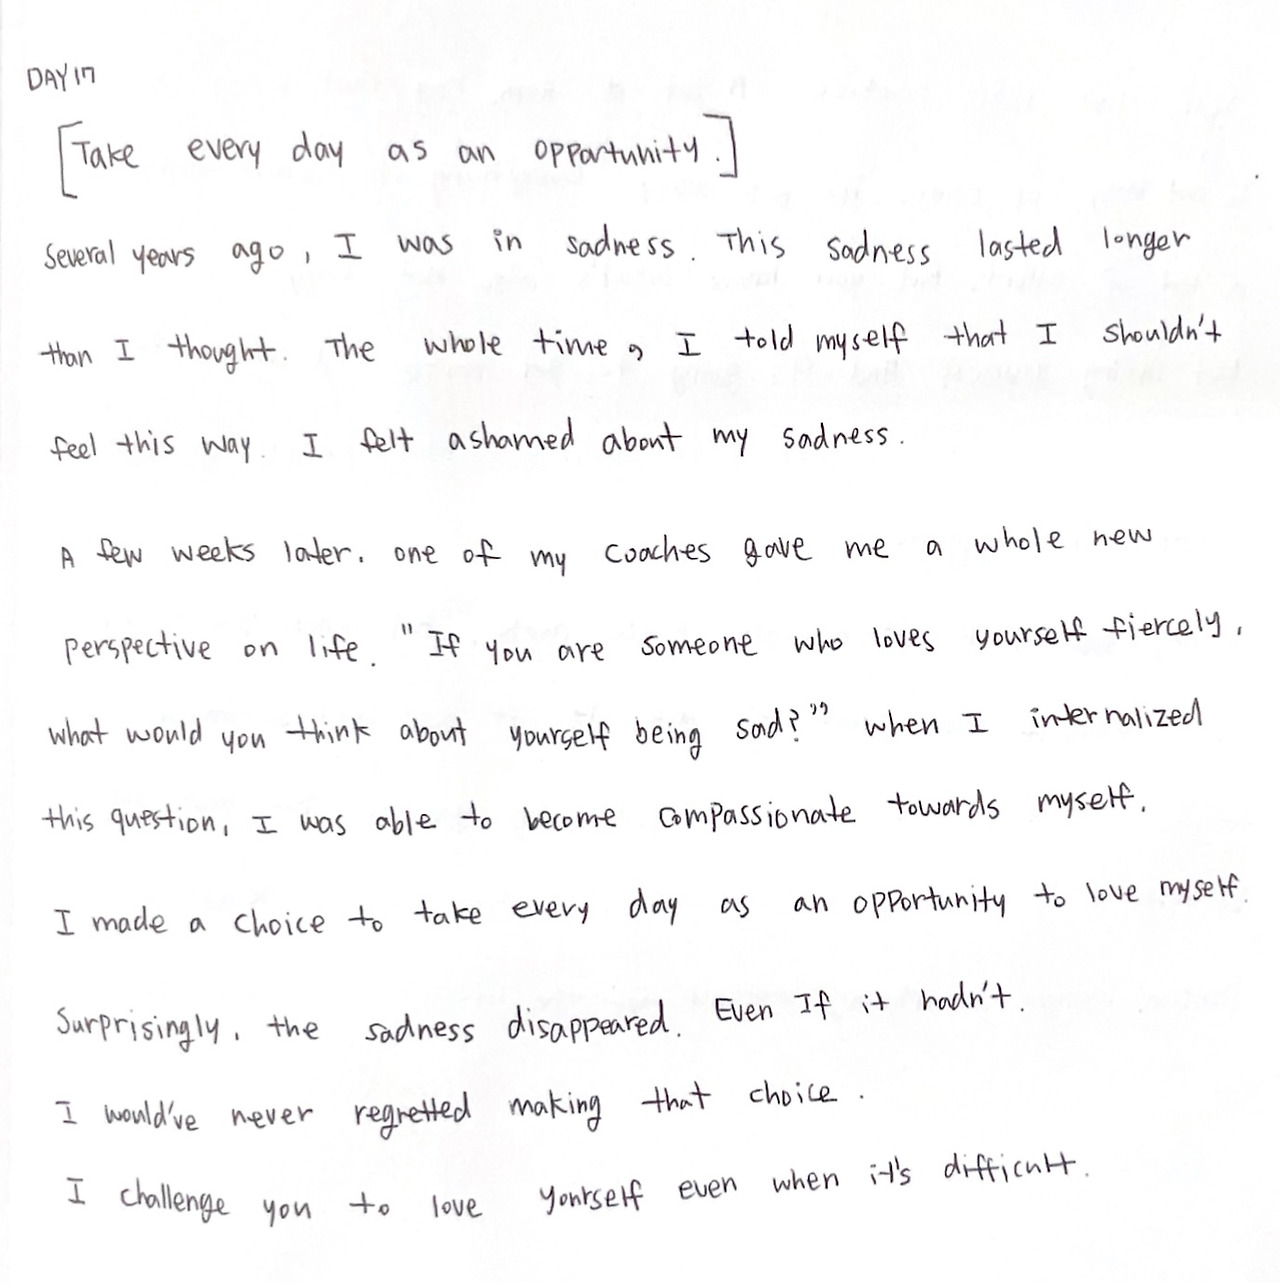 DAY 17
[Take every day as an opportunity.]
Several years ago, I was in sadness. This sadness lasted longer
than I thought. The whole time, I told myself that I shouldn't
feel this way. I felt ashamed about my sadness.
A few weeks later. one of my coaches gave me a whole new
perspective on life. "If you are someone who loves yourself fiercely,
what would you think about yourself being sad?" when I internalized
this question, I was able to become compassionate towards myself.
I made a choice to take every day as an opportunity to love myself.
Surprisingly, the sadness disappeared. Even If it hadn't.
I would've never regretted making that choice.
I challenge you to love yourself even when it's difficult.